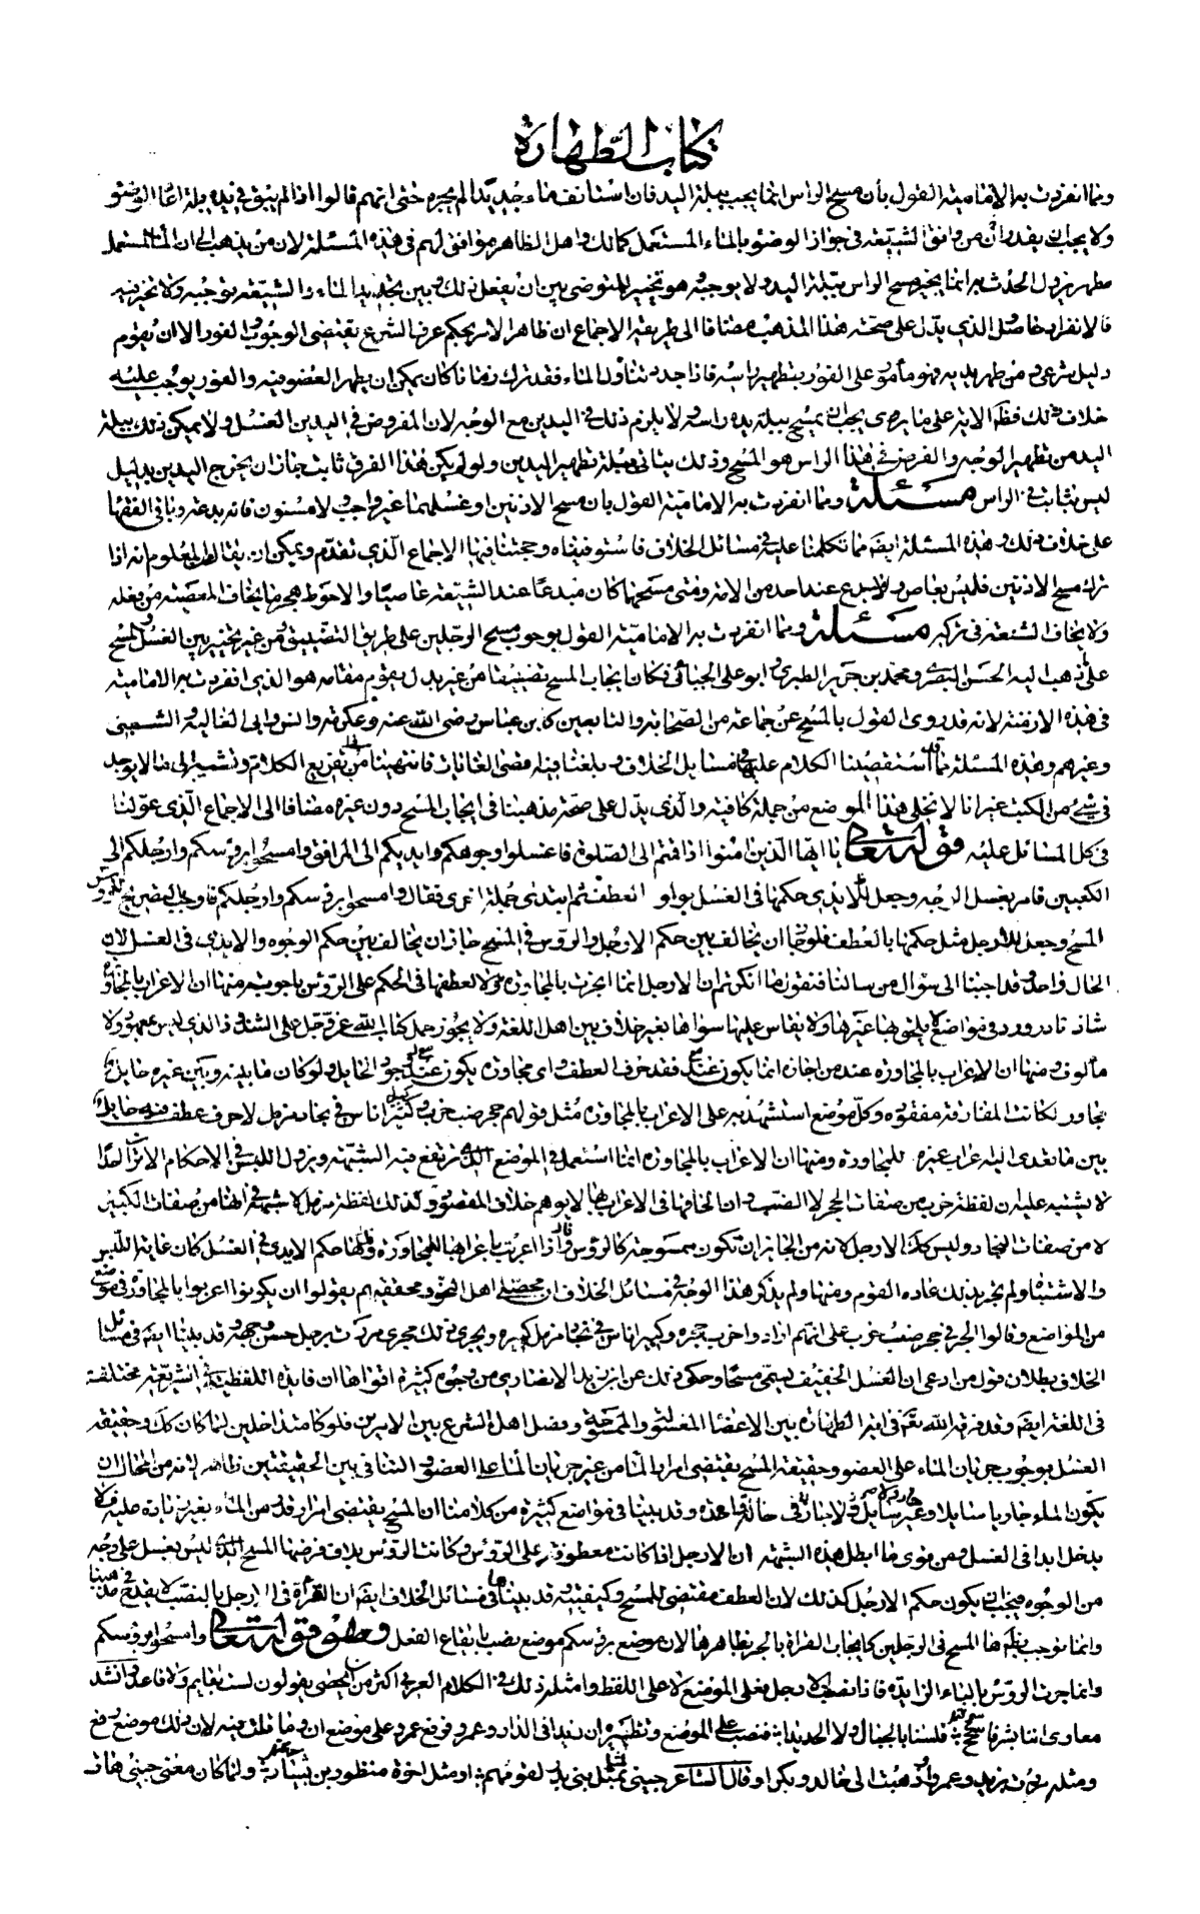 كتاب الطهارة
ومما انفردت به الإمامية القول بأن مسح الراس انما يجب ببلة اليد فان استأنف ماء جديدا لم يجزه حتى انهم قالوا اذا لم يبق في يديه بلة اعاد الوضوء
ولا يجب ان يقدر ان من وافق الشيعة في جواز الوضوء بالماء المستعمل كمالك واهل الظاهر موافق لهم في هذه المسئلة لان من يذهب الى ان الماء المستعمل
مطهر يزول الحدث به انما يجيز مسح الراس ببلة اليد ولا يوجبه هو تخيير للمتوضى بين ان يفعل ذلك وبين تجديد الماء والشيعة توجبه ولا تخير فيه
فالانفراد حاصل والذي يدل على صحة هذا المذهب مضافا الى طريقة الاجماع ان ظاهر الامر بحكم عرف الشرع يقتضى الوجوب والفور الا ان يقوم
دليل شرعى ومن طهر يديه فهو مأمور على الفور بتطهير راسه فاذا جدد تناول الماء فقد ترك زمانا كان يمكن ان يطهر العضو فيه والفور يوجب عليه
خلاف ذلك فظاهر الاية على ما يرى يجب ان يمسح ببلة يده راسه ولا يلزم ذلك في اليدين مع الوجه لان المفروض في اليدين الغسل ولا يمكن ذلك ببلة
اليد من تطهير الوجه والفرض في هذا الراس هو المسح وذلك يتاتى ببلة تطهير اليدين ولو لم يكن هذا الفرق ثابت جاز ان يخرج اليدين بدليل
ليس بثابت في الراس مسئلة ومما انفردت به الامامية القول بان مسح الاذنين او غسلهما غير واجب ولا مسنون فانه بدعة وباقي الفقهاء
على خلاف ذلك وهذه المسئلة ايضا مما تكلمنا عليه في مسائل الخلاف فاستوفيناه وحجتنا فيها الاجماع الذي تقدم ويمكن ان يقال المعلوم انه اذا
ترك مسح الاذنين فليس بعاص ولا مبدع عند احد من الامة ومتى مسحهما كان مبدعا عند الشيعة عاصيا والاحوط هجر ما يخاف المعصية من فعله
ولا يخاف الشنعة في تركه مسئلة ومما انفردت به الامامية القول بوجوب مسح الرجلين على طريق التضييق من غير تخيير بين الغسل والمسح
على ما ذهب اليه الحسن البصرى ومحمد بن جرير الطبرى وابو على الجبائى وكان ايجاب المسح تضييقا من غير بدل يقوم مقامه هو الذي انفردت به الامامية
في هذه الازمنة لانه قد روى القول بالمسح عن جماعة من الصحابة والتابعين كابن عباس رضى الله عنه وعكرمة وانس وابى العالية والشعبى
وغيرهم وهذه المسئلة مما استقصينا الكلام عليها في مسايل الخلاف وبلغنا فيه اقصى الغايات وانتهينا من تفريع الكلام وتشعيبه الى ما لا يوجد
في شئ من الكتب غير انا لا نخلى هذا الموضع من جملة كافية والذي يدل على صحة مذهبنا في ايجاب المسح دون غيره مضافا الى الاجماع الذي عولنا
في كل المسائل عليه قوله تعالى يا ايها الذين امنوا اذا قمتم الى الصلوة فاغسلوا وجوهكم وايديكم الى المرافق وامسحوا برؤسكم وارجلكم الى
الكعبين فامر بغسل الوجه وجعل للايدى حكمها في الغسل بواو العطف ثم ابتدى جملة اخرى فقال وامسحوا برؤسكم وارجلكم فاوجب بالتصريح للرؤس
المسح وجعل للارجل مثل حكمها بالعطف فلو جاز ان يخالف بين حكم الارجل والرؤس في المسح جاز ان يخالف بين حكم الوجوه والايدى في الغسل لان
الحال واحدة وقد اجبنا الى سؤال من سالنا فنقول ما انكرتم ان الارجل انما انجرت بالمجاورة لا لعطفها في الحكم على الرؤس باجوبة منها ان الاعراب بالمجاورة
شاذ نادر ورد في مواضع لا يلحق بها غيرها ولا يقاس عليها سواها بغير خلاف بين اهل اللغة ولا يجوز حمل كتاب الله عز وجل على الشذوذ الذي ليس بمعهود ولا
مألوف ومنها ان الاعراب بالمجاورة عند من اجازه انما يكون عند فقد حرف العطف واى مجاورة يكون عند وجود الحايل ولو كان ما بينه وبين غيره حايل
مجاور لكانت المفارقة مفقودة وكل موضع استشهد به على الاعراب بالمجاورة مثل قولهم جحر ضب خرب وكبير اناس في بجاد مزمل لا حرف عطف فيه حايل
بين ما تعدى اليه اعراب غيره للمجاورة ومنها ان الاعراب بالمجاورة انما استعمل في الموضع الذي ترتفع فيه الشبهة ويزول اللبس في الاحكام الا ترى ان احدا
لا يشتبه عليه ان لفظة خرب من صفات الجحر لا الضب وان الحاقها في الاعراب بها لا يوهم خلاف المقصود وكذلك لفظة مزمل لا شبهة في انها من صفات الكبير
لا من صفات البجاد وليس كذلك الارجل لانه من الجايز ان تكون ممسوحة كالرؤس فاذا اعربت باعرابها للمجاورة ولها حكم الايدى في الغسل كان غاية اللبس
والاشتباه ولم تجر بذلك عادة القوم ومنها ولم يذكر هذا الوجه في مسائل الخلاف ان محصلى اهل النحو ومحققيهم نفوا ان يكونوا اعربوا بالمجاورة في موضع
من المواضع وقالوا الجر في جحر ضب خرب على انهم ارادوا خرب جحره وكبير اناس في بجاد مزمل كبيره ويجرى ذلك مجرى مررت برجل حسن وجهه وقد بينا ايضا في مسائل
الخلاف بطلان قول من ادعى ان الغسل الخفيف يسمى مسحا وحكى ذلك عن ابى زيد الانصارى من وجوه كثيرة اقواها ان فايدة اللفظتين في الشريعة مختلفة
في اللغة ايضا وقد فرق الله تعالى في اية الطهارة بين الاعضاء المغسولة والممسوحة وفصل اهل الشرع بين الامرين فلو كانا متداخلين لما كان كذلك وحقيقة
الغسل يوجب جريان الماء على العضو وحقيقة المسح يقتضى امرار الماء من غير جريان الماء على العضو والتنافى بين الحقيقتين ظاهر لانه من المحال ان
يكون الماء جاريا سايلا وغير سايل في حالة واحدة وقد بينا في مواضع كثيرة من كلامنا ان المسح يقتضى امرار قدر من الماء بغير زيادة عليه فلا
يدخل ابدا في الغسل ومن قوى ما ابطل هذه الشبهة ان الارجل اذا كانت معطوفة على الرؤس وكانت الرؤس بلا خلاف فرضها المسح الذي ليس بغسل على وجه
من الوجوه فيجب ان يكون حكم الارجل كذلك لان العطف مقتضى للمسح وكيفيته وقد بينا في مسائل الخلاف ايضا ان القراءة في الارجل بالنصب لا يقدح في مذهبنا
وانما توجب بظاهرها المسح في الرجلين كايجاب القراءة بالجر بظاهرها لان موضع برؤسكم موضع نصب بايقاع الفعل وهو قوله تعالى وامسحوا برؤسكم
وانما جرت الرؤس بالباء الزايدة فاذا نصبت الارجل فعلى الموضع لا على اللفظ وامثلة ذلك في الكلام العربى اكثر من ان يحصى يقولون لست بقايم ولا قاعدا وانشد
معاوى اننا بشر فاسجح فلسنا بالجبال ولا الحديدا فنصب على الموضع ونظيره ان زيدا في الدار وعمرو فرفع عمرو على موضع ان وما عملت فيه لان ذلك موضع رفع
ومثله مررت بزيد وعمروا وذهبت الى خالد وبكرا وقال الشاعر جيئى بمثل بنى بدر لقومهم او مثل اخوة منظور بن سيار ولما كان معنى جيئى هات